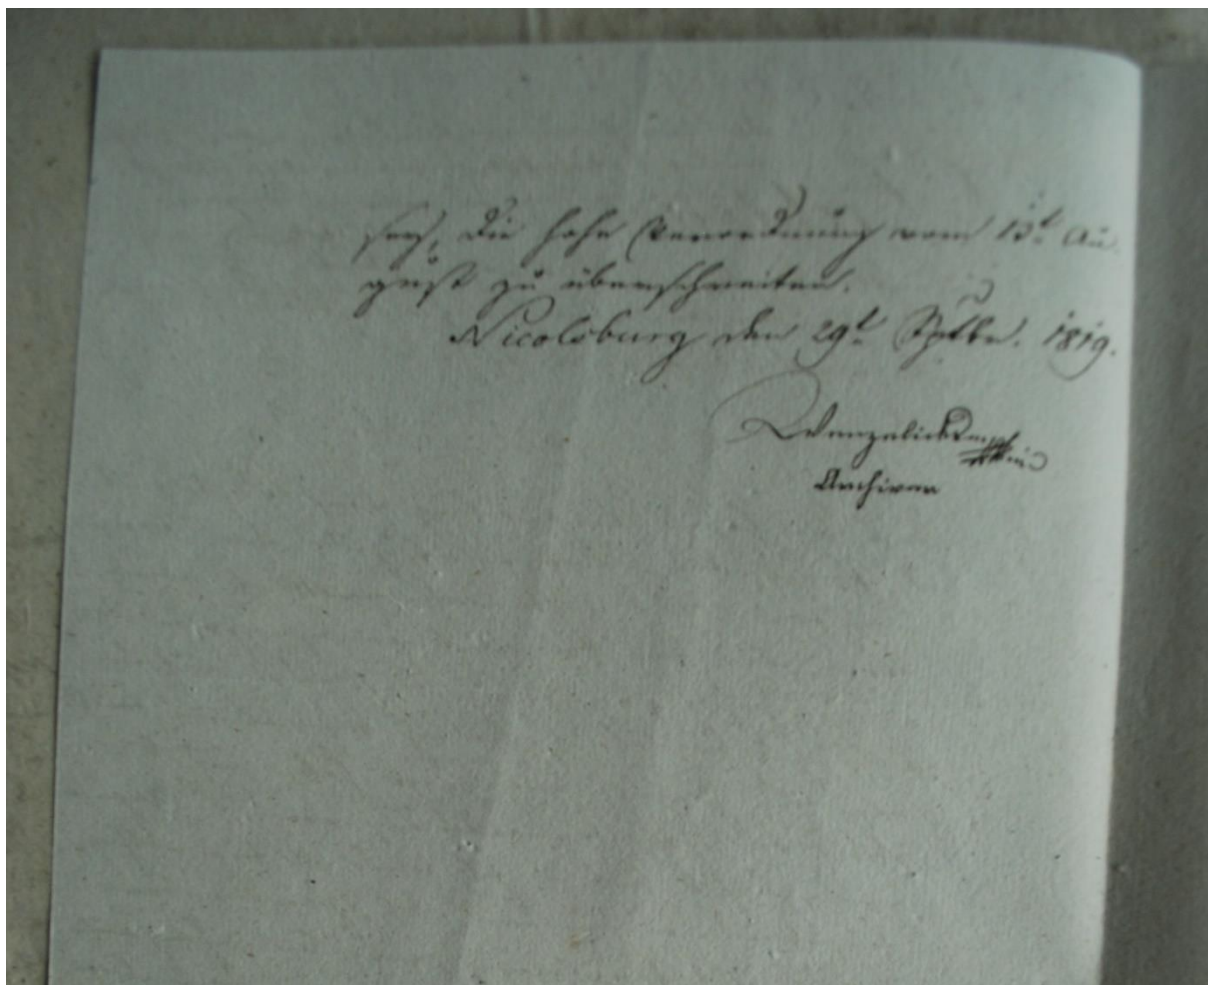 seyn, die hohe Verordnung vom 13t. Au
gust zu überschreiten.
Nicolsburg den 29t. Septbr. 1819.
Archivar